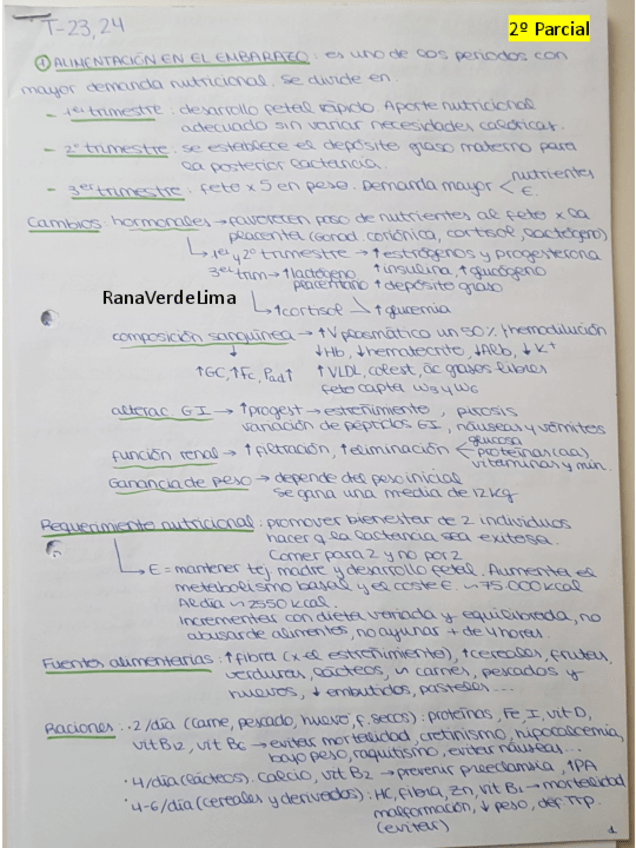 T-23,24
2º Parcial
① ALIMENTACIÓN EN EL EMBARAZO: es uno de los periodos con
mayor demanda nutricional. Se divide en.
- 1er trimestre: desarrollo fetal rápido. Aporte nutricional
adecuado sin variar necesidades calóricas.
- 2º trimestre: se establece el depósito graso materno para
la posterior lactancia.
- 3er trimestre: feto x 5 en peso. Demanda mayor < nutrientes
E.
Cambios: hormonales → favorecen paso de nutrientes al feto x la
placenta (Gonad. coriónica, cortisol, lactógeno)
↳ 1er y 2º trimestre → ↑ estrógenos y progesterona
3er trim → ↑ lactógeno placentario ↑ insulina, ↑ glucógeno
↑ depósito graso
RanaVerdeLima
↳ ↑ cortisol ↘ ↑ glucemia
composición sanguínea → ↑ V plasmático un 50% / hemodilución
↓ Hb, ↓ hematocrito, ↓ Alb, ↓ K+
↑ GC, ↑ Fc, Pad ↑ ↑ VLDL, colest, ác grasos libres
feto capta w3 y w6
alterac. GI → ↑ progest → estreñimiento, pirosis
variación de péptidos GI, náuseas y vómitos
función renal → ↑ filtración, ↑ eliminación < glucosa
proteínas (aa)
vitaminas y min.
Ganancia de peso → depende del peso inicial
se gana una media de 12 kg
Requerimiento nutricional: promover bienestar de 2 individuos
hacer q la lactancia sea exitosa.
Comer para 2 y no por 2
↳ E = mantener tej. madre y desarrollo fetal. Aumenta el
metabolismo basal y el coste E. ~ 75.000 kcal
Al día ~ 2550 kcal.
Incrementar con dieta variada y equilibrada, no
abusar de alimentos, no ayunar + de 4 horas.
Fuentes alimentarias: ↑ fibra (x el estreñimiento), ↑ cereales, frutas,
verduras, lácteos, ~ carnes, pescados y
huevos, ↓ embutidos, pasteles...
Raciones: · 2/día (carne, pescado, huevo, f. secos): proteínas, Fe, I, vit D,
vit B12, vit B6 → evitar mortalidad, cretinismo, hipocalcemia,
bajo peso, raquitismo, evitar náuseas...
· 4/día (lácteos). Calcio, vit B2 → prevenir preeclamsia, ↑ PA
· 4-6/día (cereales y derivados): HC, fibra, Zn, vit B1 → mortalidad
malformación, ↓ peso, def. TTP.
(evitar)
1